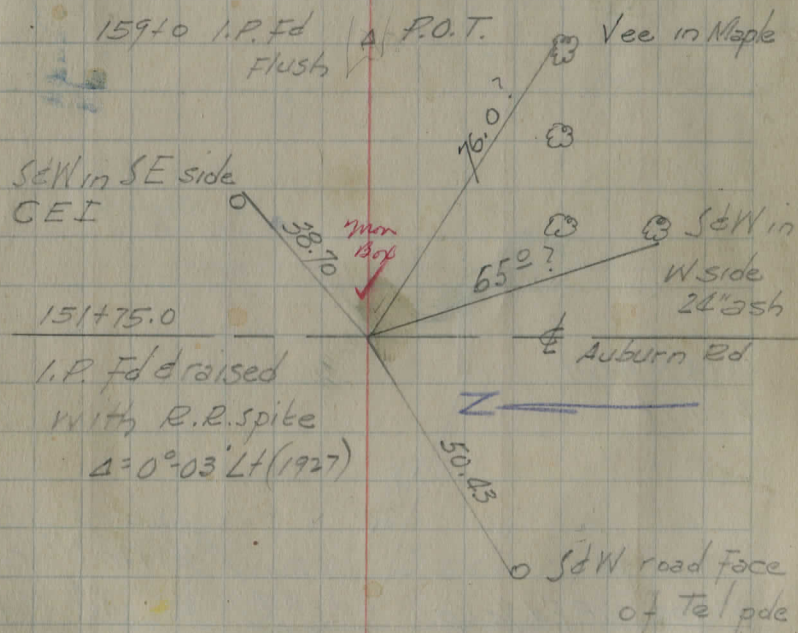 159+0 I.P. Fd
Flush
P.O.T.
Vee in Maple
76.0?
S&W in SE side
CEI
38.70
Mon
Box
65º?
S&W in
W side
24" ash
151+75.0
℄ Auburn Rd
I.P. Fd & raised
with R.R. spike
Δ=0°-03' Lt (1927)
Z
50.43
S&W road face
of Tel pde